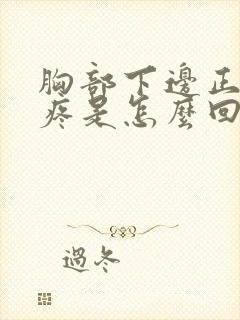 胸部下邊正
疼是怎麼回
過冬